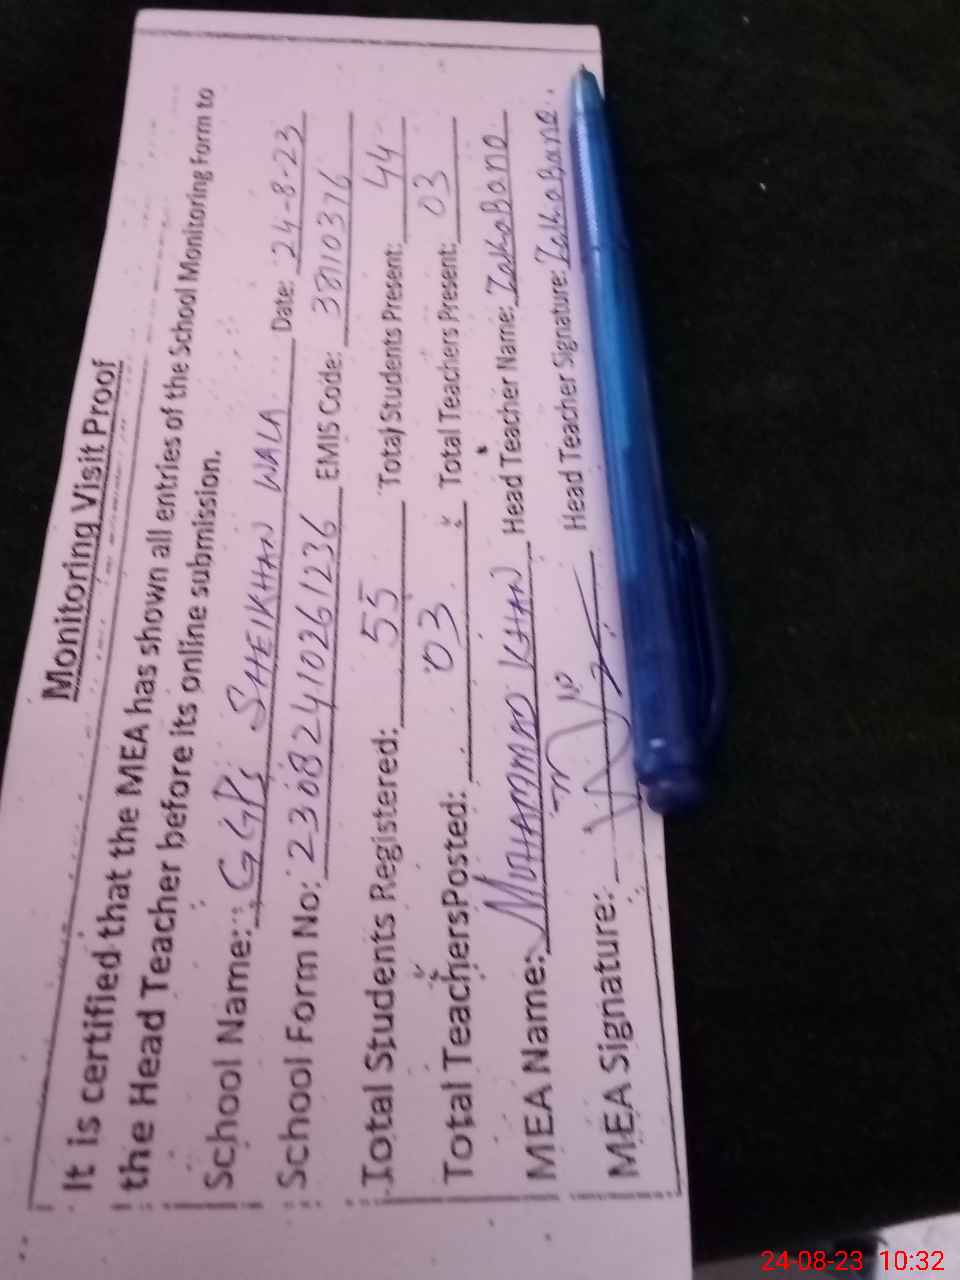 Monitoring Visit Proof
It is certified that the MEA has shown all entries of the School Monitoring Form to
the Head Teacher before its online submission.
School Name: GGPS SHEIKHAN WALA Date: 24-8-23
School Form No: 23082410261236 EMIS Code: 38110376
Total Students Registered: 55 Total Students Present: 44
Total TeachersPosted: 03 Total Teachers Present: 03
MEA Name: MUHAMMAD KHAN Head Teacher Name: ZakaBano
MEA Signature: Head Teacher Signature: ZakaBano
24-08-23 10:32